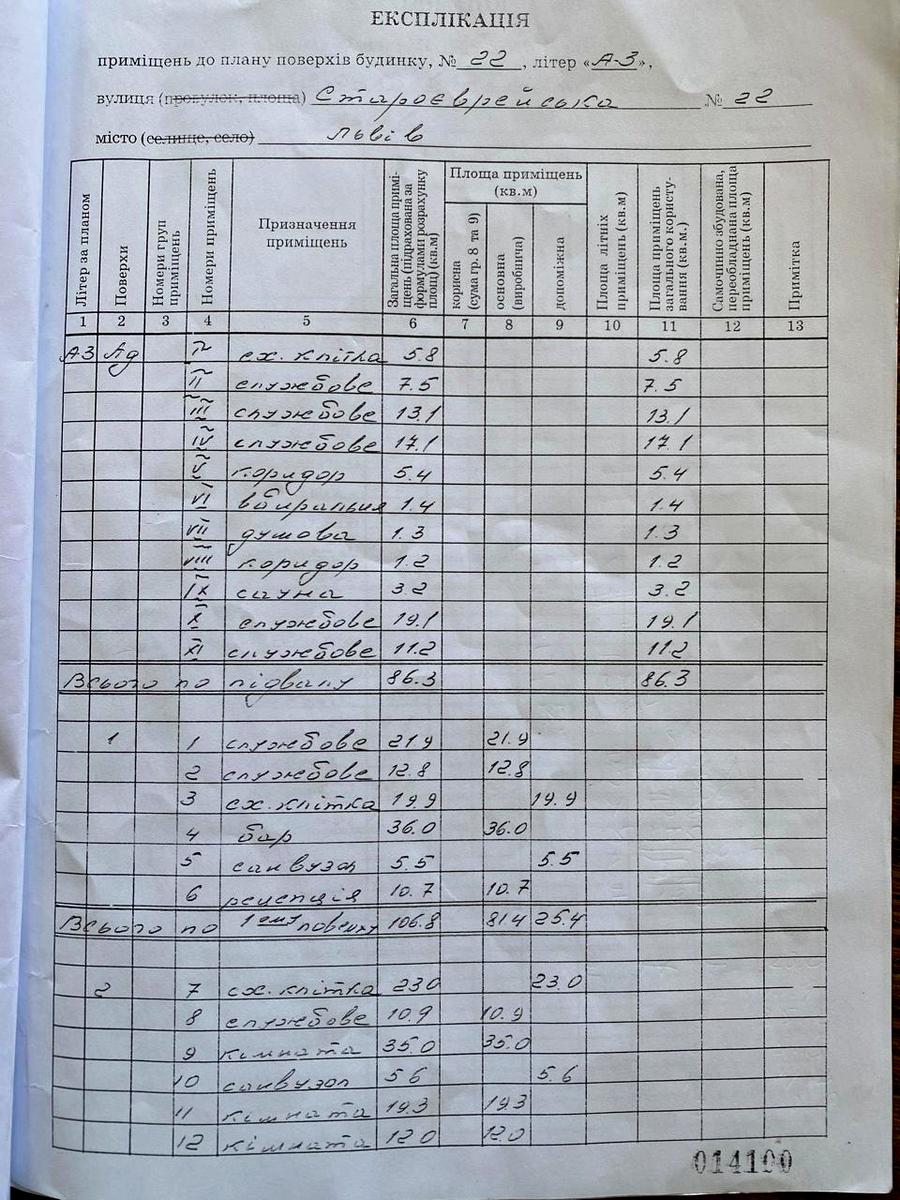 ЕКСПЛІКАЦІЯ
приміщень до плану поверхів будинку, № 22, літер «А-3»,
вулиця (провулок, площа) Староєврейська № 22
місто (селище, село) Львів
Літер за планом
Поверхи
Номери груп приміщень
Номери приміщень
Призначення приміщень
Загальна площа приміщень (підрахована за формулами розрахунку площ) (кв.м)
Площа приміщень (кв.м)
корисна (сума гр. 8 та 9)
основна (виробнича)
допоміжна
Площа літніх приміщень (кв.м)
Площа приміщень загального користування (кв.м.)
Самочинно збудована, переобладнана площа приміщень (кв.м)
Примітка
1 2 3 4 5 6 7 8 9 10 11 12 13
А3 Ад сх. клітка 5.8 5.8
II службове 7.5 7.5
III службове 13.1 13.1
IV службове 17.1 17.1
V коридор 5.4 5.4
VI вбиральня 1.4 1.4
VII душова 1.3 1.3
VIII коридор 1.2 1.2
IX сауна 3.2 3.2
X службове 19.1 19.1
XI службове 11.2 11.2
Всього по підвалу 86.3 86.3
1 1 службове 21.9 21.9
2 службове 12.8 12.8
3 сх. клітка 19.9 19.9
4 бар 36.0 36.0
5 санвузол 5.5 5.5
6 рецепція 10.7 10.7
Всього по 1ему поверху 106.8 81.4 25.4
2 7 сх. клітка 23.0 23.0
8 службове 10.9 10.9
9 кімната 35.0 35.0
10 санвузол 5.6 5.6
11 кімната 19.3 19.3
12 кімната 12.0 12.0
014100